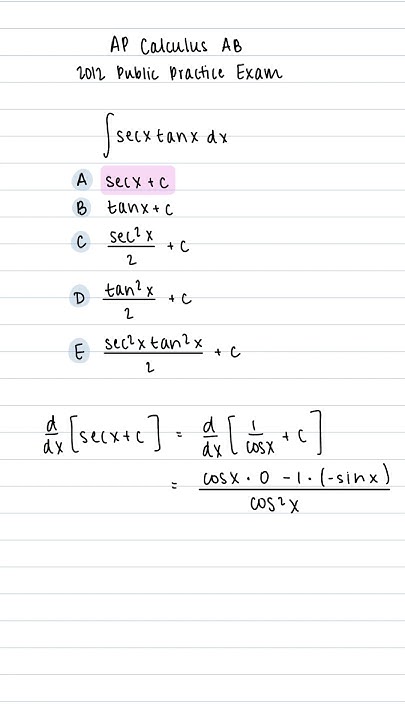 AP Calculus AB
2012 Public Practice Exam
∫ secx tanx dx
A secx + c
B tanx + c
C sec²x/2 + c
D tan²x/2 + c
E sec²x tan²x/2 + c
d/dx [secx + c] = d/dx [1/cosx + c]
= (cosx · 0 - 1 · (-sinx))/cos²x